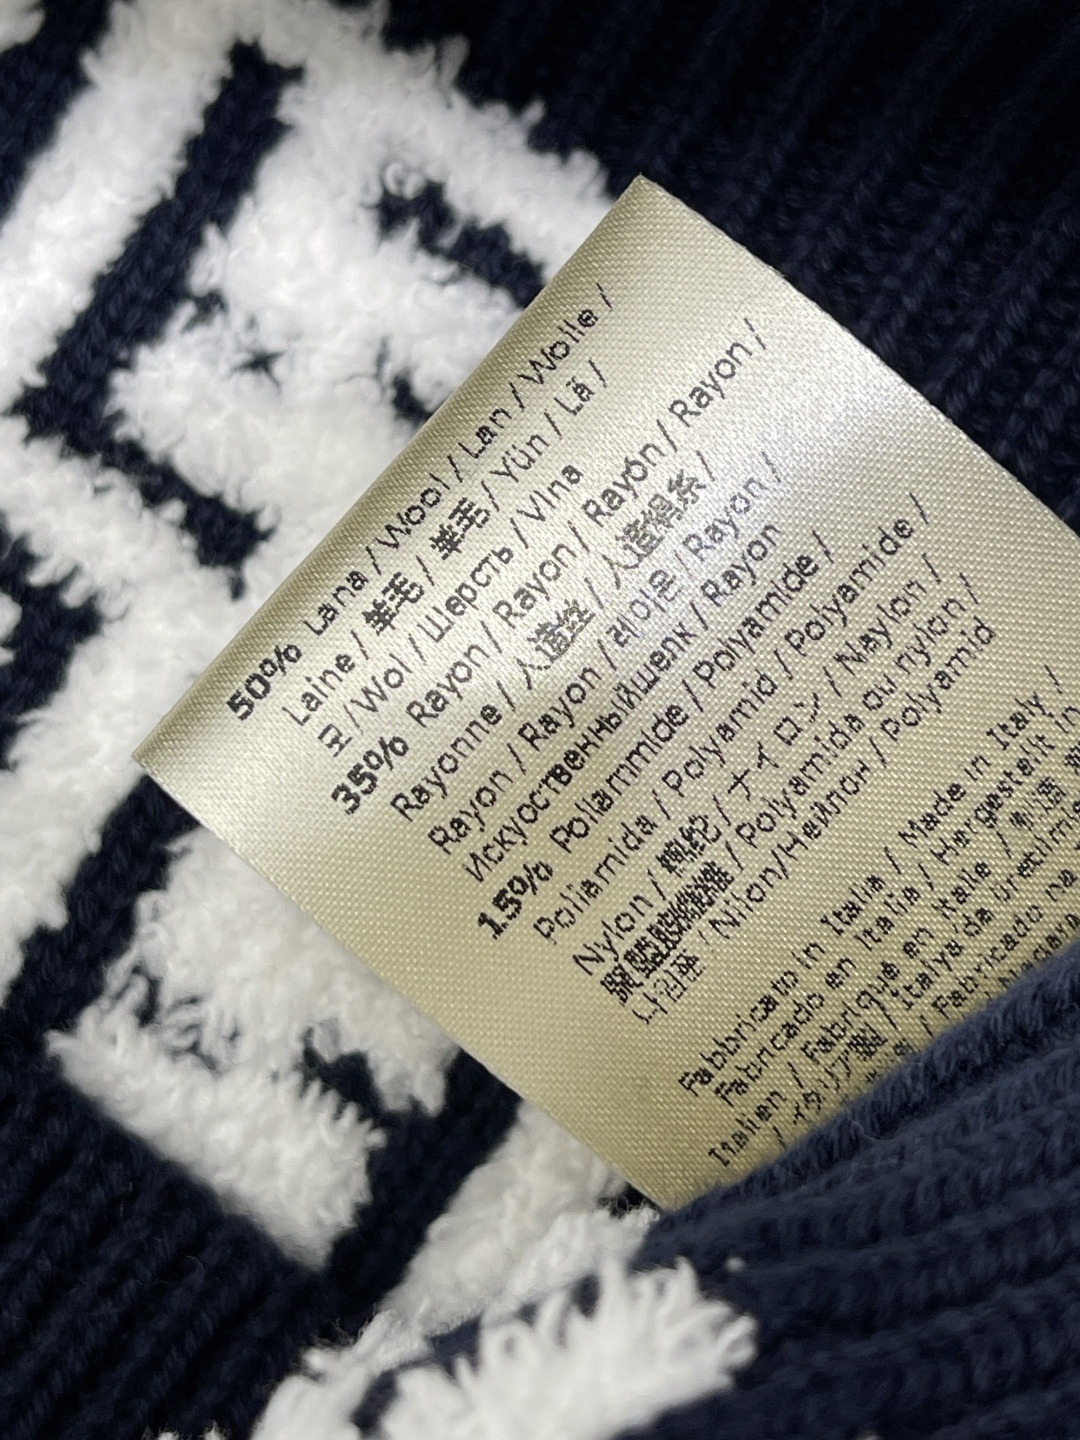 50% Lana / Wool / Lan / Wolle /
Laine / 羊毛 / 羊毛 / Yün / Lã /
모 / Wol / Шерсть / Vlna
35% Rayon / Rayon / Rayón / Rayon /
Rayonne / 人造丝 / 人造絹糸 /
Rayon / Rayon / 레이온 / Rayon /
Искуственныйшелк / Rayon
15% Poliammide / Polyamide /
Poliamida / Polyamid / Polyamide /
Nylon / ナイロン / Naylon /
/ Polyamida ou nylon /
나일론 / Nilon/Нейлон / Polyamid
Fabbricato in Italia / Made in Italy /
Fabricado en Italia / Hergestellt in
Italien / Fabriqué en Italie /
/ イタリア製 / Italya'da üretilmiş
/ Fabricado